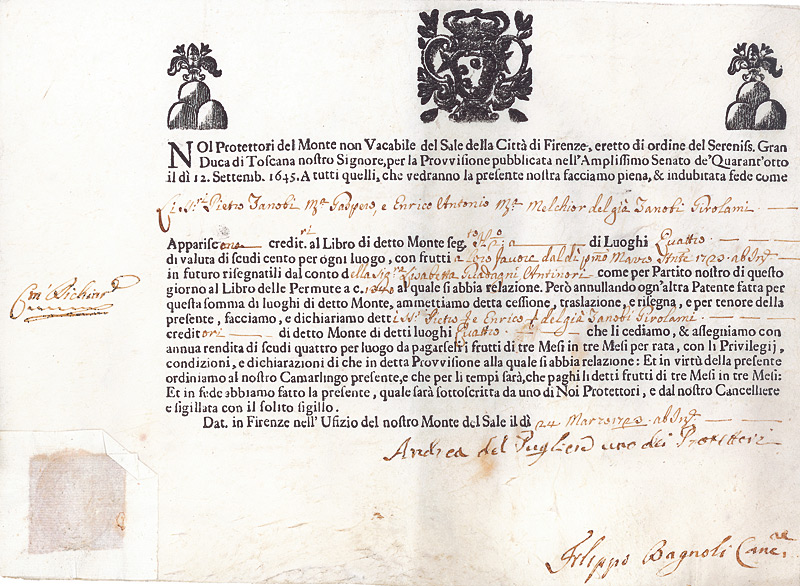 NOI Protettori del Monte non Vacabile del Sale della Città di Firenze, eretto di ordine del Sereniss. Gran
Duca di Toscana nostro Signore, per la Provvisione pubblicata nell'Amplissimo Senato de' Quarant'otto
il dì 12. Settemb. 1645. A tutti quelli, che vedranno la presente nostra facciamo piena, & indubitata fede come
Li SS.ri Pietro Zanobi Mª Gaspero, e Enrico Antonio Mª Melchior del già Zanobi Girolami
Appariscono credit.ri al Libro di detto Monte seg. di Luoghi Quattro
di valuta di scudi cento per ogni luogo, con frutti a loro favore dal dì pmo Marzo 1723 ab Inc
in futuro risegnatili dal conto della Sig.ra Lisabetta Guadagni Antinori come per Partito nostro di questo
giorno al Libro delle Permute a c. al quale si abbia relazione. Però annullando ogn'altra Patente fatta per
questa somma di luoghi di detto Monte, ammettiamo detta cessione, traslazione, e risegna, e per tenore della
presente, facciamo, e dichiariamo detti SS.ri Pietro Ze Enrico del già Zanobi Girolami
creditori di detto Monte di detti luoghi Quattro che li cediamo, & assegniamo con
annua rendita di scudi quattro per luogo da pagarseli i frutti di tre Mesi in tre Mesi per rata, con li Privilegij,
condizioni, e dichiarazioni di che in detta Provvisione alla quale si abbia relazione: Et in virtù della presente
ordiniamo al nostro Camarlingo presente, e che per li tempi sarà, che paghi li detti frutti di tre Mesi in tre Mesi:
Et in fede abbiamo fatto la presente, quale sarà sottoscritta da uno di Noi Protettori, e dal nostro Cancelliere
e sigillata con il solito sigillo.
Dat. in Firenze nell' Ufizio del nostro Monte del Sale il dì 24 Marzo 1723 ab Inc
Andrea del Pugliese uno dei Protettori
Filippo Bagnoli Canc.re